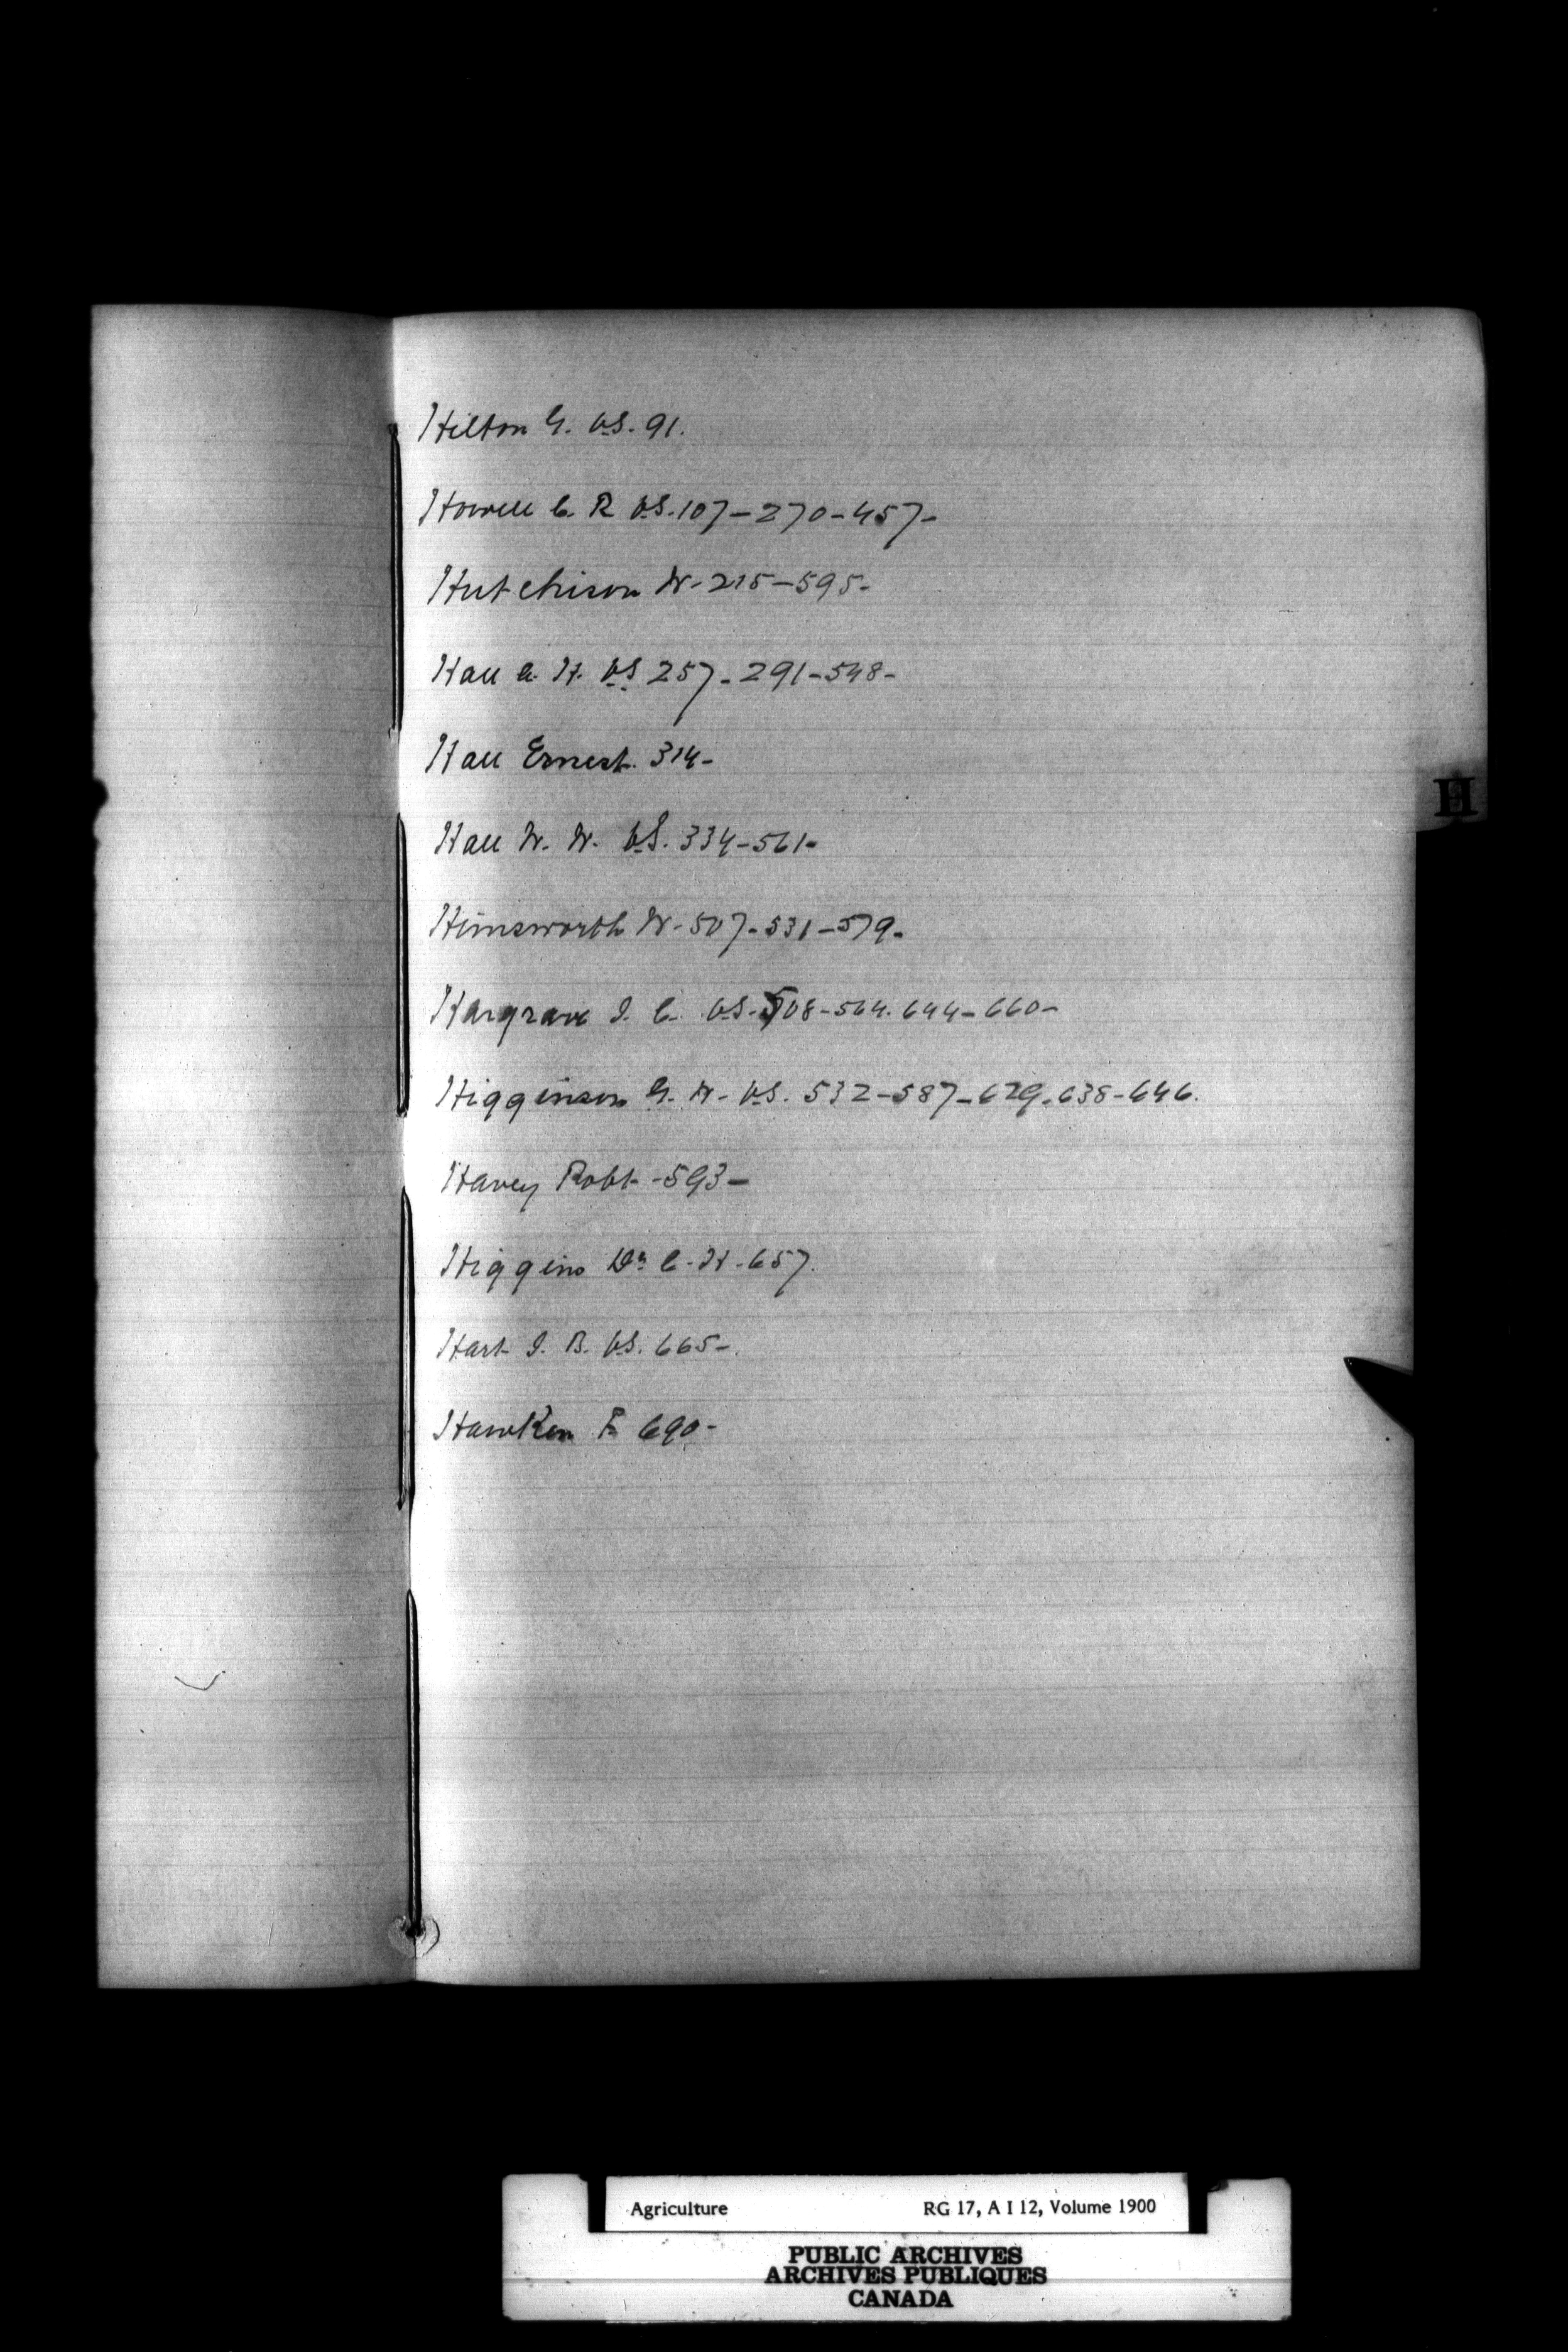 Hilton G. V.S. 91.
Howell C. R V.S. 107-270-457-
Hutchison W- 215-595-
Hall A. H. V.S 257-291-548-
Hall Ernest. 314-
H
Hall W. W. V.S. 334-561-
Himsworth W- 507-531-579-
Hargrave J. C. V.S. 508-564. 644-660-
Higginson G. W- V.S. 532-587-629-638-646.
Harvey Robt -593-
Higgins Dr C. H - 657.
Hart J. B. V.S. 665-
Hawken F. 690-
Agriculture RG 17, A I 12, Volume 1900
PUBLIC ARCHIVES
ARCHIVES PUBLIQUES
CANADA